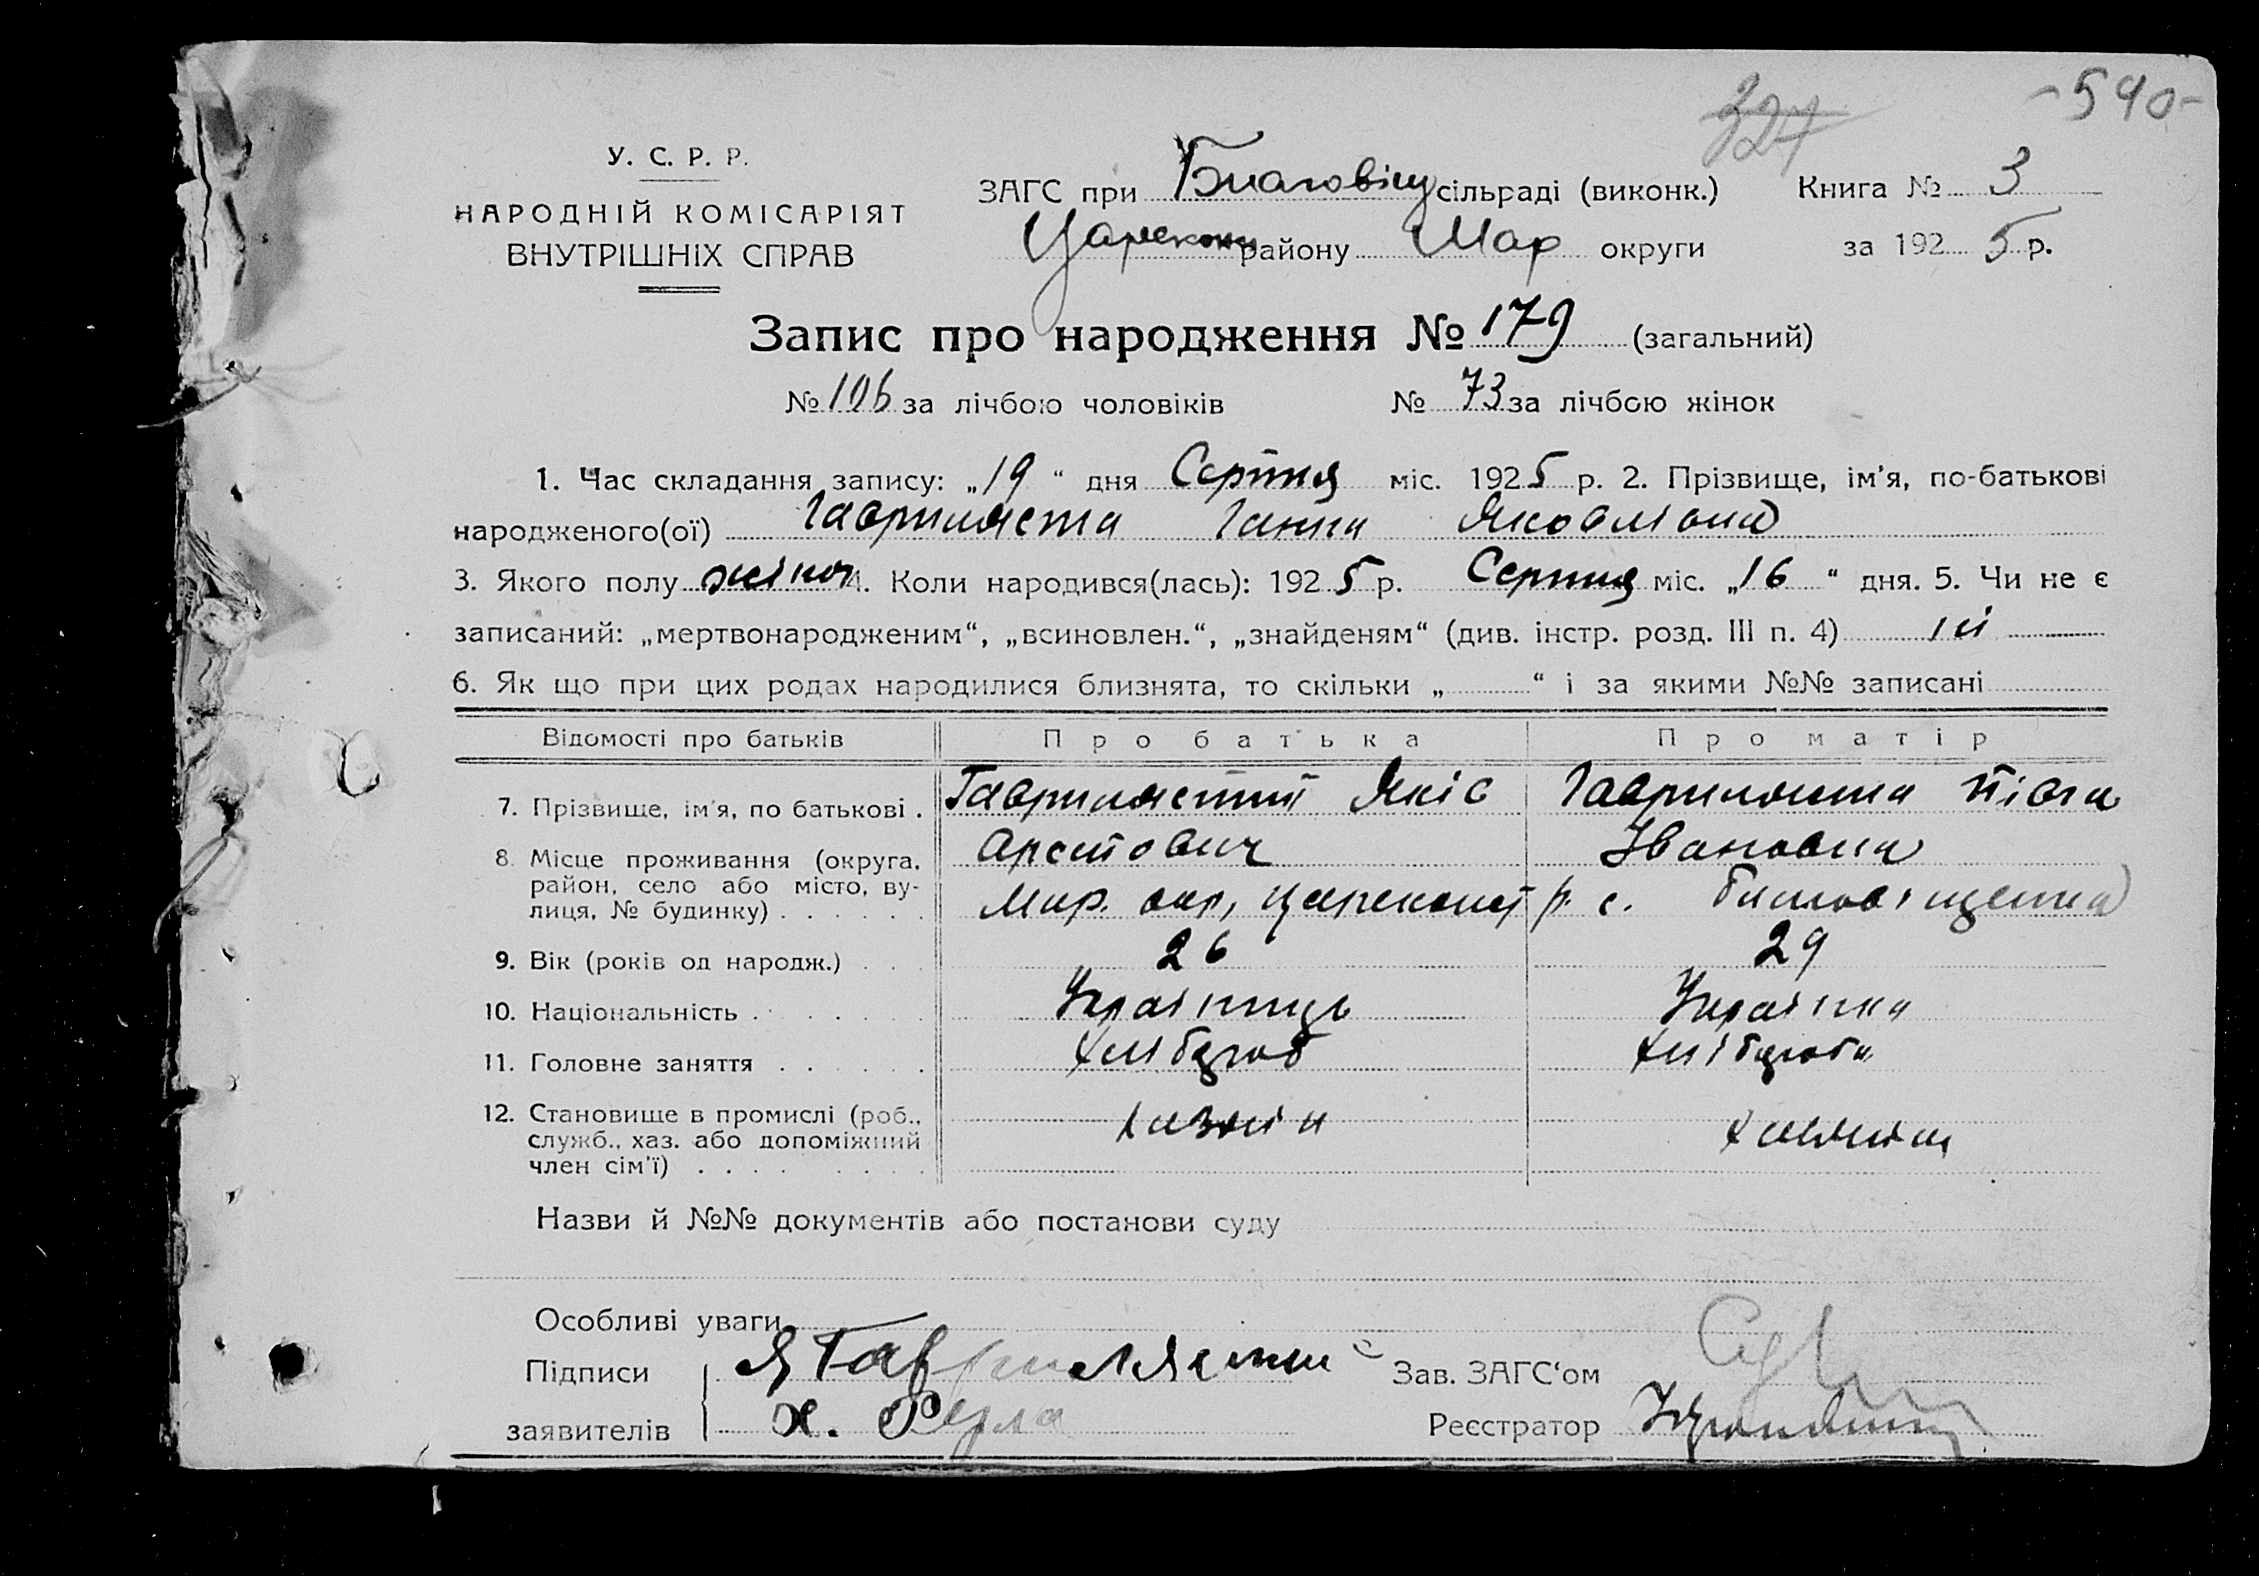 327
-590-
У. С. Р. Р.
НАРОДНІЙ КОМІСАРІЯТ
ВНУТРІШНІХ СПРАВ
ЗАГС при Благовіщ сільраді (виконк.) Книга № 3
Царекон району Мар округи за 1925 р.
Запис про народження № 179 (загальний)
№ 106 за лічбою чоловіків № 73 за лічбою жінок
1. Час складання запису: „19“ дня Серпня міс. 1925 р. 2. Прізвище, ім'я, по-батькові
народженого(ої) Гавриляста Ганна Яковлівна
3. Якого полу жіноч 4. Коли народився(лась): 1925 р. Серпня міс. „16“ дня. 5. Чи не є
записаний: „мертвонародженим“, „всиновлен.“, „знайденям“ (див. інстр. розд. III п. 4) ні
6. Як що при цих родах народилися близнята, то скільки „ “ і за якими №№ записані
Відомості про батьків Про батька Про матір
7. Прізвище, ім'я, по батькові . Гаврилястий Яків Гавриляста
Іванівна
8. Місце проживання (округа, район, село або місто, вулиця, № будинку) . . . . . . Мар. окр, Царекон р. с. Благовіщенка
9. Вік (років од народж.) . . . 26 29
10. Національність . . . . . . Українець Українка
11. Головне заняття . . . . . . Хлібороб Хлібороб
12. Становище в промислі (роб., служб., хаз. або допоміжний член сім'ї) . . . . . . . . хазяїн
Назви й №№ документів або постанови суду
Особливі уваги
Підписи Я Гаврилясти Зав. ЗАГС'ом
заявителів х. Реєстратор